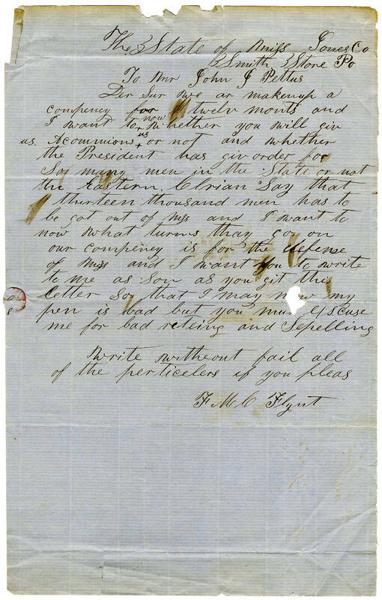 The State of Miss Jones Co
Smith Store Po
To Mr John J Pettus
Der Sur we ar makeing up a
compeney for twelv monts and
I want to now whether you will giv
us. A commision us or not and whether
the President has giv order for
So many men in the State or not
the Eastern Clrian Say that
thurteen thousand men has to
be got out of Miss and I want to
now what turms thay go on
our compeney is for the defense
of Miss and I want you to write
to me as Son as you git the
letter So that I may now my
pen is bad but you must Excuse
me for bad riteing and Spelling
Write without fail all
of the perticelers if you pleas
F. M. C Flynt